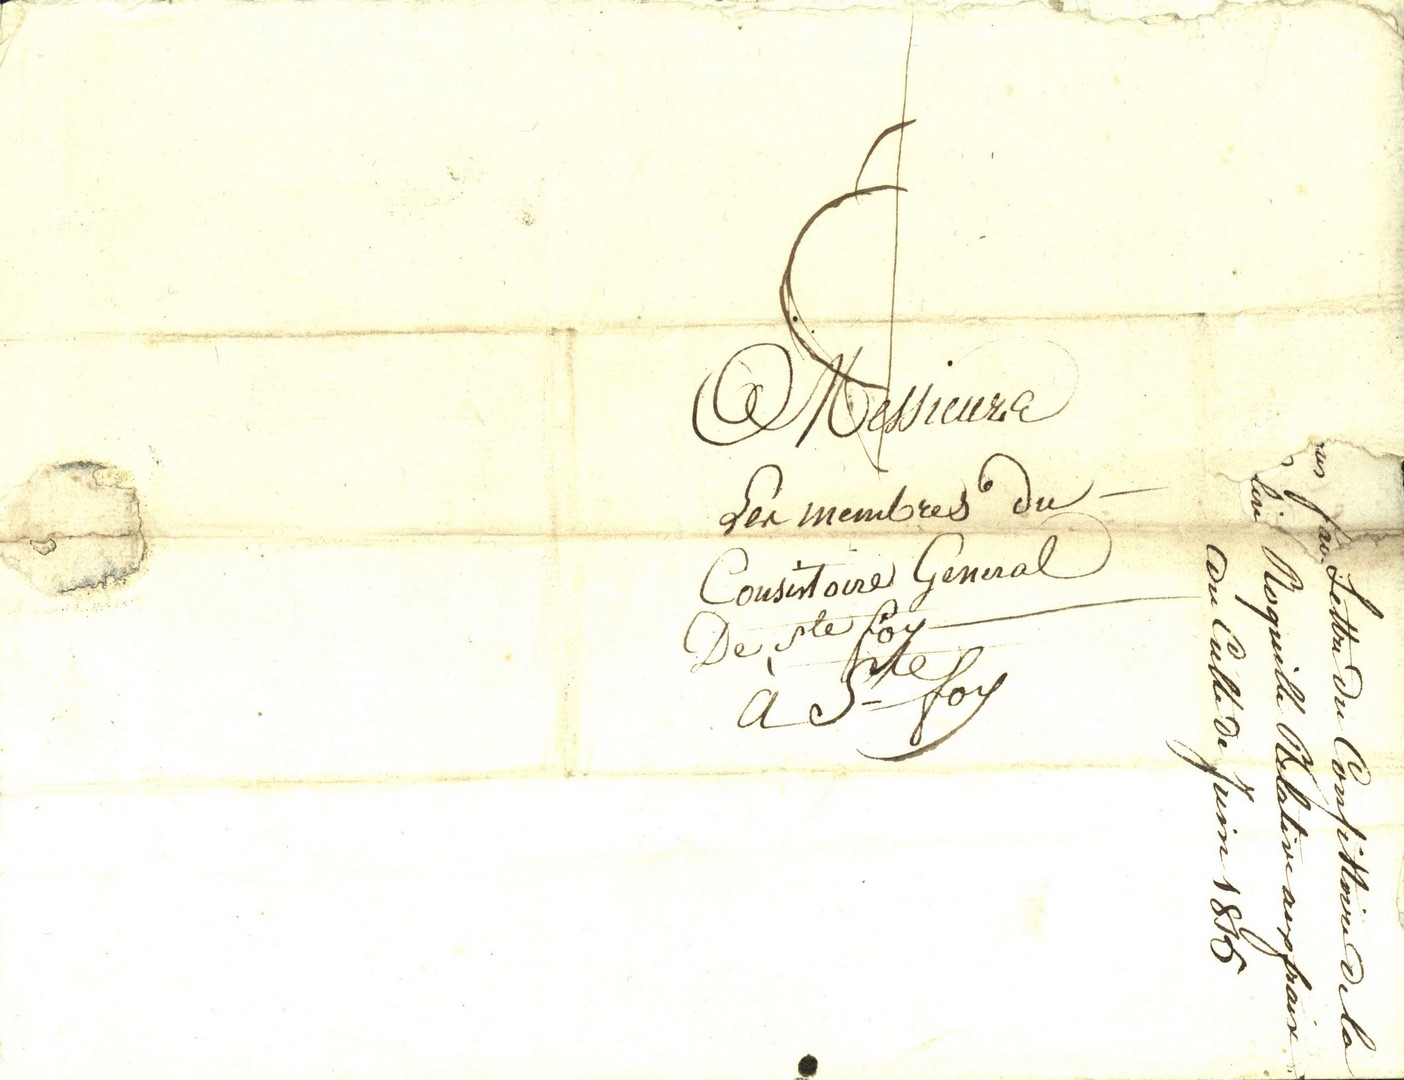 A Messieurs
Les membres du
Consistoire Général
De Ste foy
à Ste foy
Lettre du Consistoire de la
Roquille Relative aux frais
du Culte de Juin 1816